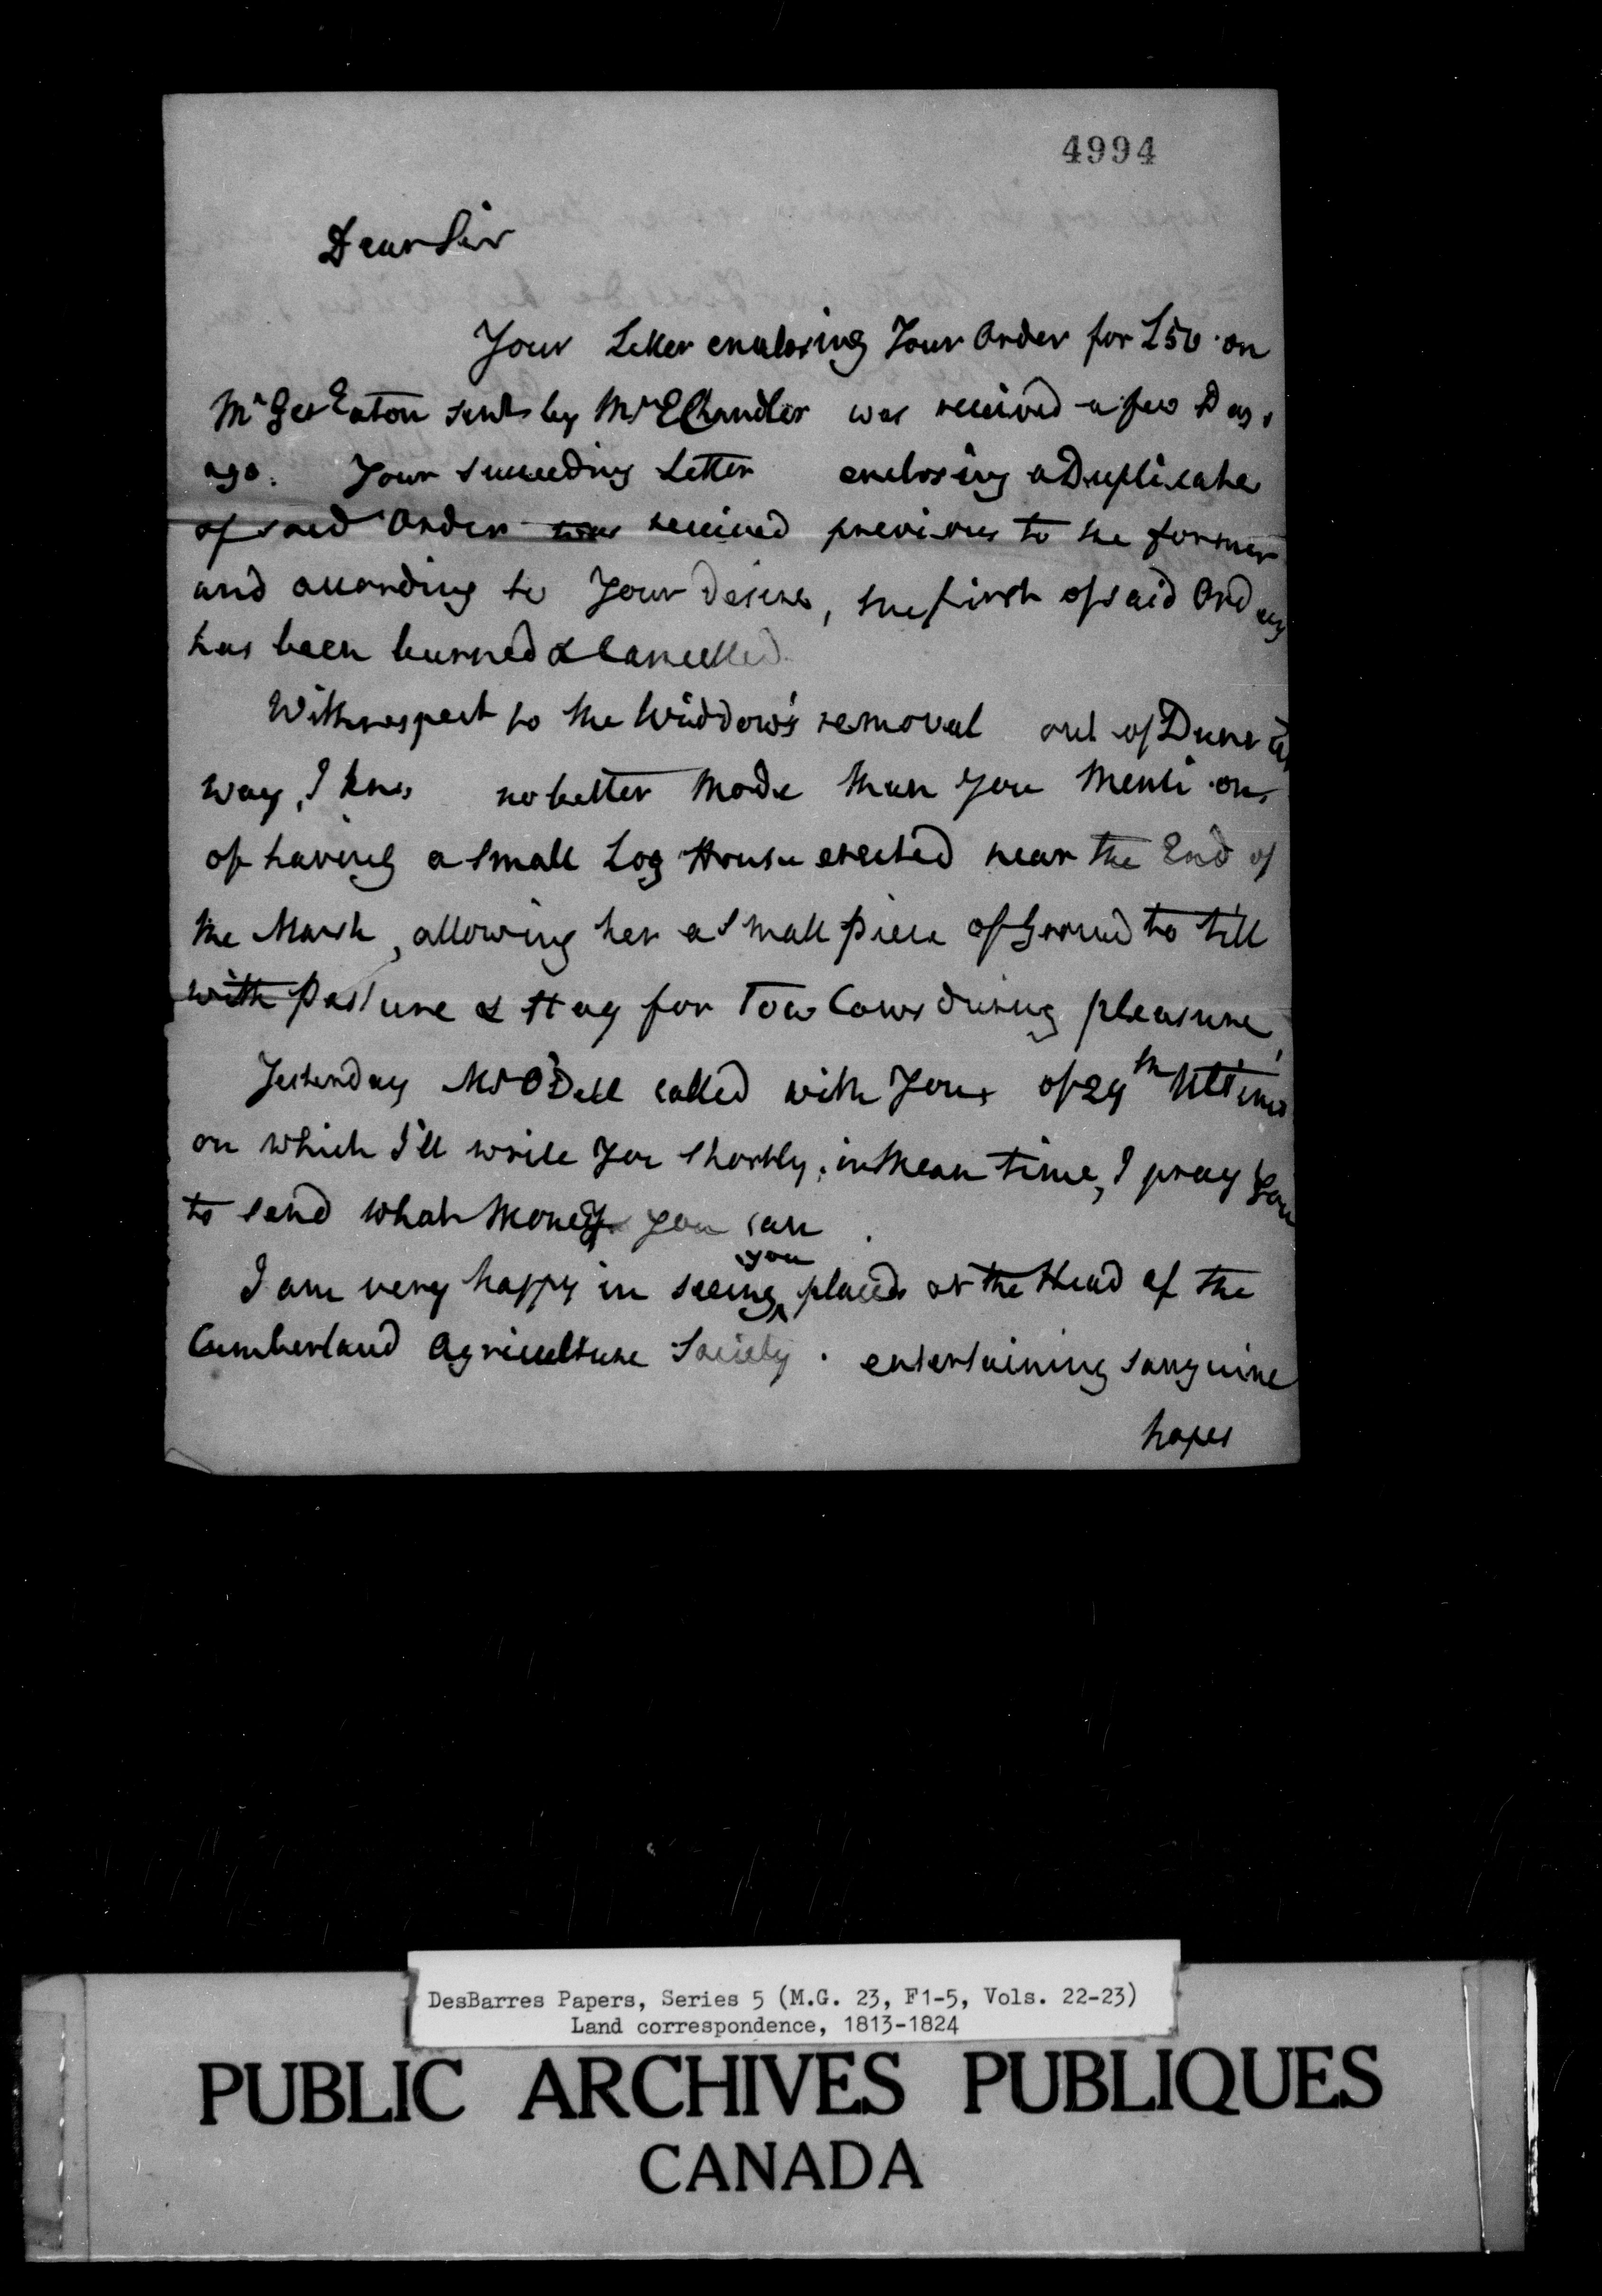 4994
Dear Sir
Your Letter enclosing Your Order for £50 on
Mr Geo Eaton sent by Mr E Chandler was received a few Days
ago. Your succeeding Letter enclosing a Duplicate
of said Order was received previous to the former
and according to Your desire, the first of said Orders
has been burned & Cancelled.
With respect to the Widdow's removal out of Dunns
way, I know no better Mode than you Mention
of having a small Log House erected near the End of
the Marsh, allowing her a small piece of Ground to till
with pasture & Hay for Tow Cows during pleasure,
Yesterday Mr O'Dell called with Yours of 29th Ultimo
on which I'll write You shortly, in Mean time, I pray You
to send what Money you can.
I am very happy in seeing you placed at the Head of the
Cumberland Agriculture Society. entertaining sanguine
hopes
DesBarres Papers, Series 5 (M.G. 23, F1-5, Vols. 22-23)
Land correspondence, 1813-1824
PUBLIC ARCHIVES PUBLIQUES
CANADA